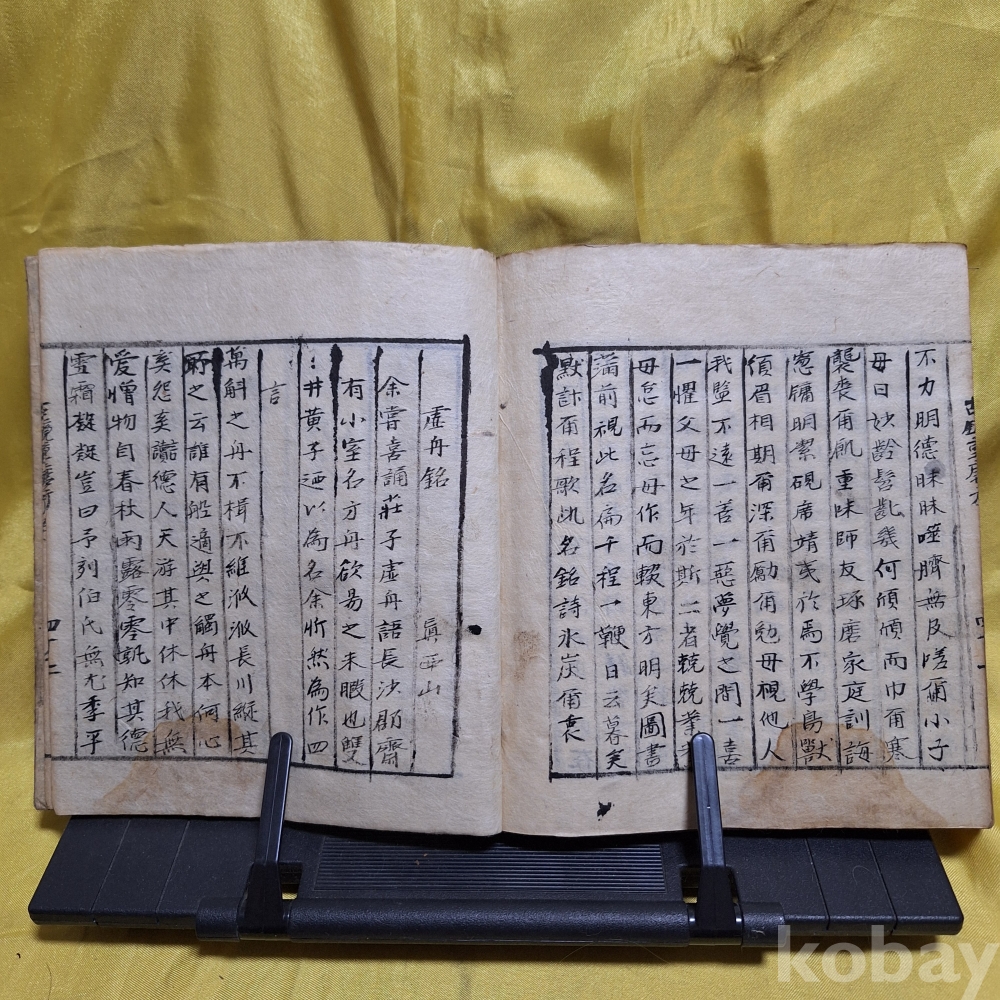 不力明德昧昧噬臍無及嗟爾小子
毋曰妙齡髫齔幾何頎頎而巾爾寒
襲喪爾飢重味師友琢磨家庭訓誨
窓牖明潔硯席靖 於焉不學鳥獸
須眉相期爾深爾勵爾勉毋視他人
我墮不遠一善一惡夢覺之間一喜
一懼父母之年於斯二者兢兢業業
毋怠而忘毋作而輟東方明矣圖書
滿前視此名扁千程一鞭日云暮矣
默計爾程歌此名銘詩氷炭爾衷
虛舟銘 眞西山
余嘗喜誦莊子虛舟語長沙郡齋
有小室名方舟欲易之未暇也雙
井黃子迺以為名余忻然為作四
言
萬斛之舟不楫不維汎汎長川縱其
所之云誰有船適與之觸舟本何心
奚怨奚讟德人天游其中休休我無
爱憎物自春秋雨露零零孰知其德
雪霜殺殺豈曰予刻伯氏無尤季平
kobay